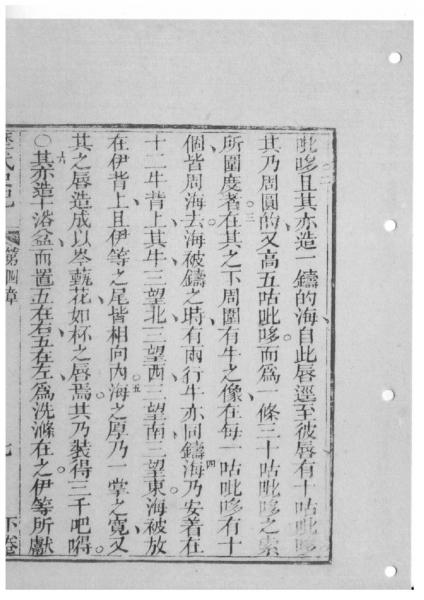 吡哆且其亦造一鑄的海自此唇逕至彼唇有十咕吡哆
其乃周圓的又高五咕吡哆而爲一條三十咕吡哆之索
所圍度著在其之下周圍有牛之像在每一咕吡哆有十
個皆周海去海被鑄之時有兩行牛亦同鑄海乃安着在
十二牛背上其牛三望北三望西三望南三望東海被放
在伊背上且伊等之尾皆相向內海之厚乃一掌之寬又
其之唇造成以岑蓺花如杯之唇焉其乃裝得三千吧㘔
○其亦造十浴盆而置五在右五在左爲洗滌在之伊等所獻
第四章
七
下卷